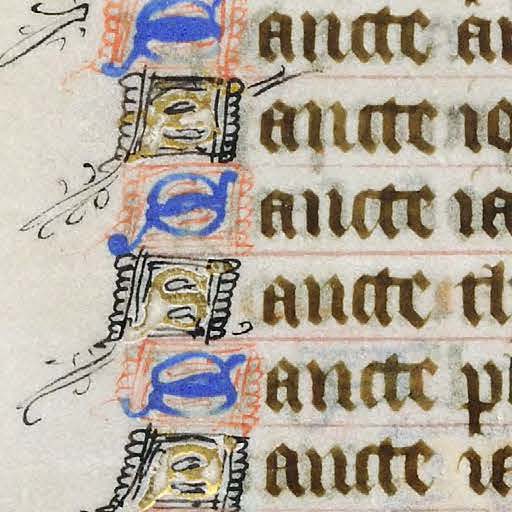 Sancte an
Sancte io
Sancte ia
Sancte th
Sancte ph
Sancte ia